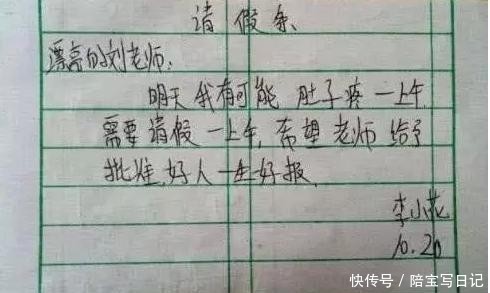 请假条
漂亮的刘老师:
明天我有可能肚子疼一上午.
需要请假一上午,希望老师给予
批准.好人一生好报.
李小花
10.20
快传号/陪宝写日记